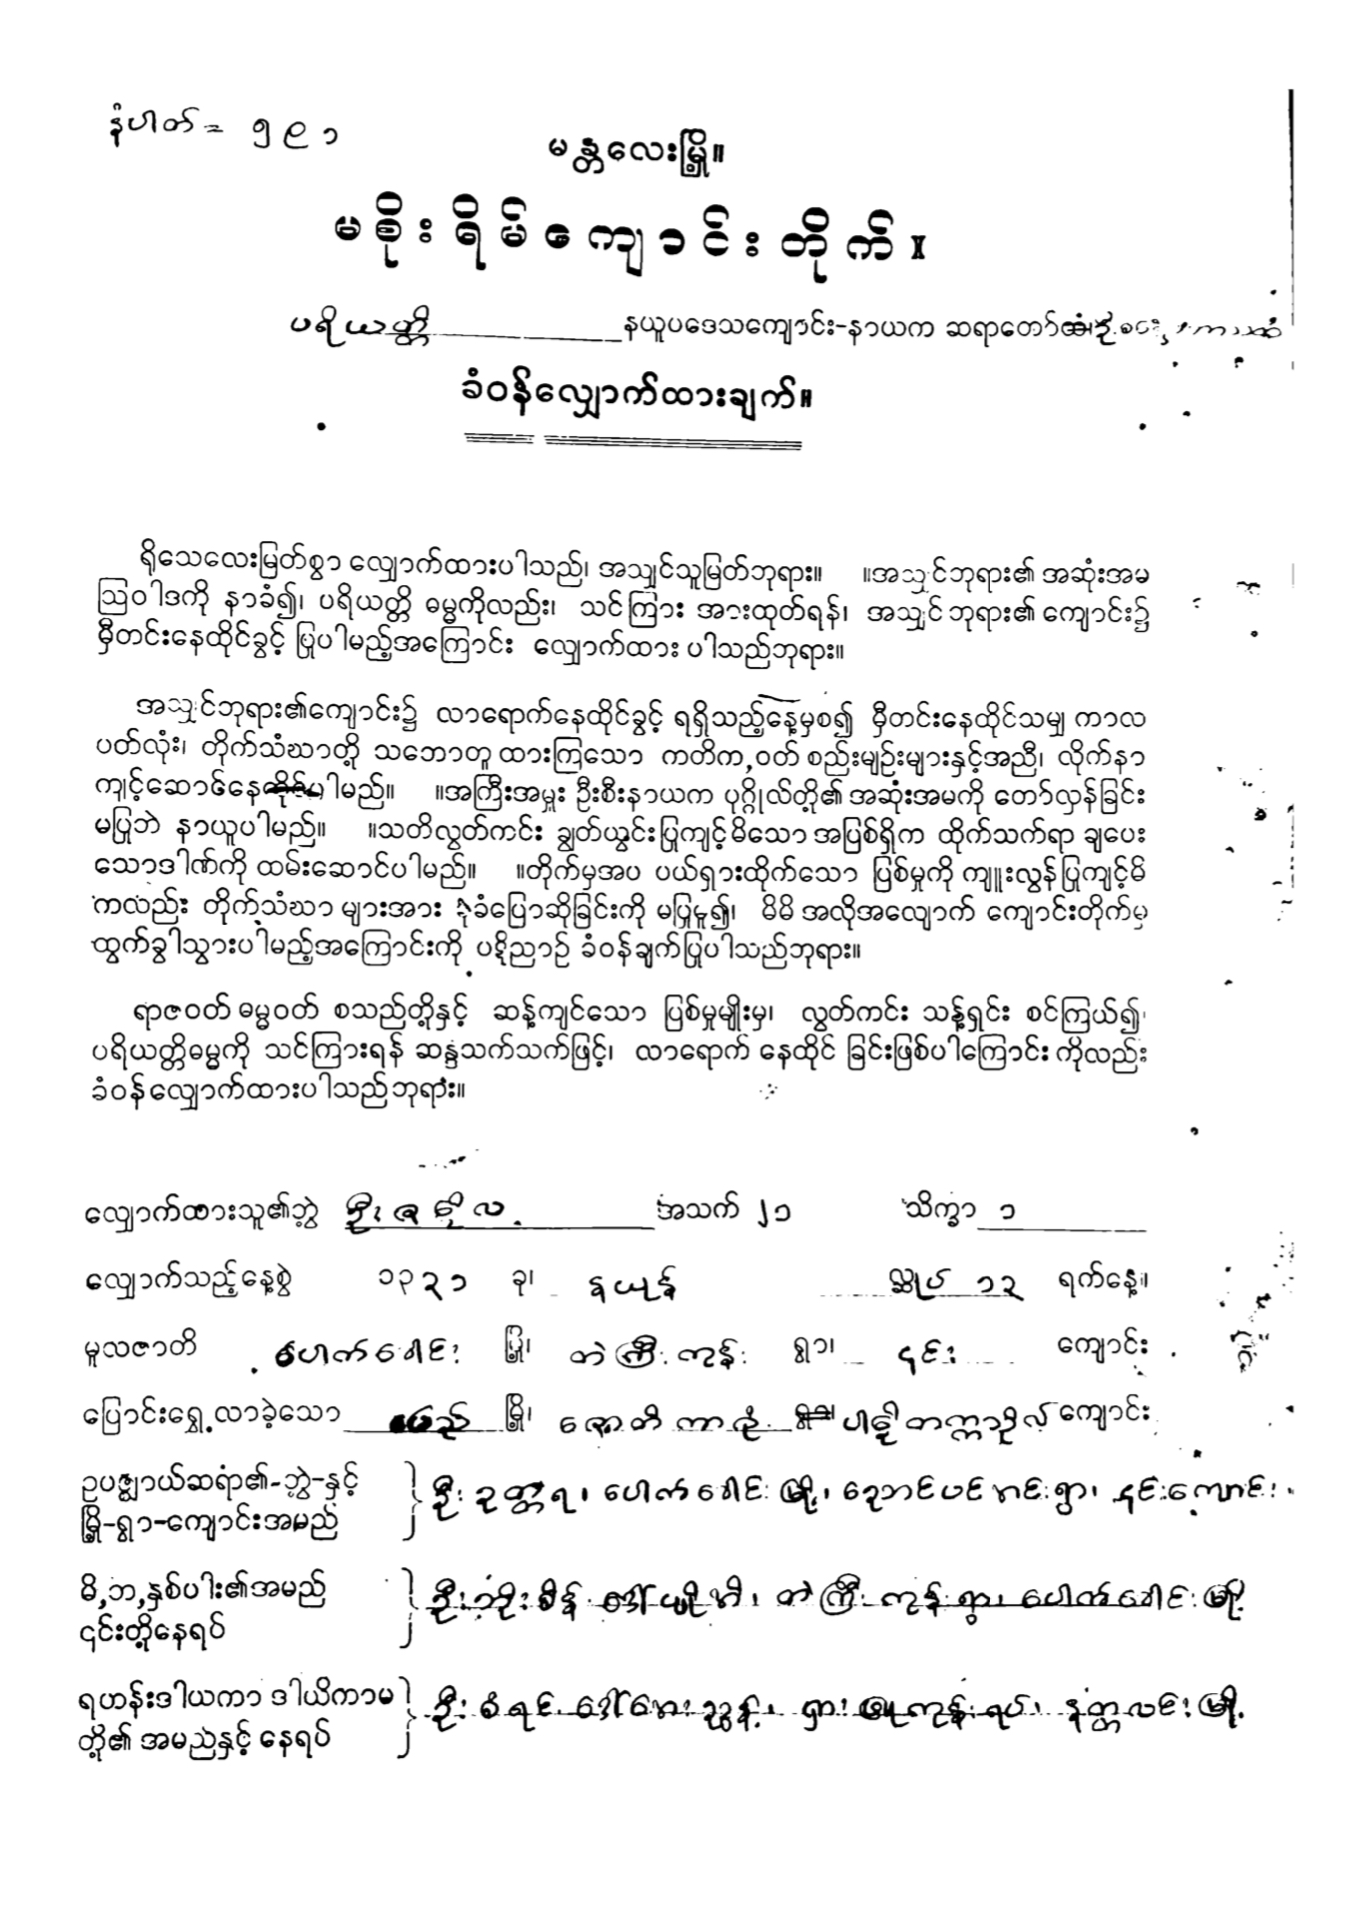 နံပါတ် = ၅၉၁
မန္တလေးမြို့။
မစိုးရိမ်ကျောင်းတိုက်။
ပရိယတ္တိ နယူပဒေသကျောင်း-နာယက ဆရာတော်
ခံဝန်လျှောက်ထားချက်။
ရိုသေလေးမြတ်စွာ လျှောက်ထားပါသည်၊ အသျှင်သူမြတ်ဘုရား။ ။အသျှင်ဘုရား၏ အဆုံးအမ
ဩဝါဒကို နာခံ၍၊ ပရိယတ္တိ ဓမ္မကိုလည်း၊ သင်ကြား အားထုတ်ရန်၊ အသျှင်ဘုရား၏ ကျောင်း၌
မှီတင်းနေထိုင်ခွင့် ပြုပါမည့်အကြောင်း လျှောက်ထား ပါသည်ဘုရား။
အသျှင်ဘုရား၏ကျောင်း၌ လာရောက်နေထိုင်ခွင့် ရရှိသည့်နေ့မှစ၍ မှီတင်းနေထိုင်သမျှ ကာလ
ပတ်လုံး၊ တိုက်သံဃာတို့ သဘောတူ ထားကြသော ကတိက,ဝတ် စည်းမျဉ်းများနှင့်အညီ၊ လိုက်နာ
ကျင့်ဆောင်နေထိုင်ပါမည်။ ။အကြီးအမှူး ဦးစီးနာယက ပုဂ္ဂိုလ်တို့၏ အဆုံးအမကို တော်လှန်ခြင်း
မပြုဘဲ နာယူပါမည်။ ။သတိလွတ်ကင်း ချွတ်ယွင်းပြုကျင့်မိသော အပြစ်ရှိက ထိုက်သက်ရာ ချပေး
သောဒါဏ်ကို ထမ်းဆောင်ပါမည်။ ။တိုက်မှအပ ပယ်ရှားထိုက်သော ပြစ်မှုကို ကျူးလွန်ပြုကျင့်မိ
ကလည်း တိုက်သံဃာ များအား ခုခံပြောဆိုခြင်းကို မပြုမူ၍၊ မိမိ အလိုအလျောက် ကျောင်းတိုက်မှ
ထွက်ခွါသွားပါမည့်အကြောင်းကို ပဋိညာဉ် ခံဝန်ချက်ပြုပါသည်ဘုရား။
ရာဇဝတ် ဓမ္မဝတ် စသည်တို့နှင့် ဆန့်ကျင်သော ပြစ်မှုမျိုးမှ၊ လွတ်ကင်း သန့်ရှင်း စင်ကြယ်၍၊
ပရိယတ္တိဓမ္မကို သင်ကြားရန် ဆန္ဒသက်သက်ဖြင့်၊ လာရောက် နေထိုင် ခြင်းဖြစ်ပါကြောင်း ကိုလည်း
ခံဝန်လျှောက်ထားပါသည်ဘုရား။
လျှောက်ထားသူ၏ဘွဲ့ ဦး ဇဋိလ အသက် ၂၁ သိက္ခာ ၁
လျှောက်သည့်နေ့စွဲ ၁၃၃၁ ခု၊ နယုန် လ္ဆုပ် ၁၃ ရက်နေ့။
မူလဇာတိ ပေါက်ခေါင်း မြို့၊ တဲကြီးကုန်း ရွာ၊ ၎င်း ကျောင်း
ပြောင်းရွှေ့လာခဲ့သော ပြည် မြို့၊ ဇောတိကာရုံ ရွာ၊ ပါဠိတက္ကသိုလ် ကျောင်း
ဥပဇ္ဈာယ်ဆရာ၏-ဘွဲ့-နှင့် ဦး ဥတ္တရ၊ ပေါက်ခေါင်းမြို့၊ ညောင်ပင် ရွာ၊ ၎င်းကျောင်း၊
မြို့-ရွာ-ကျောင်းအမည်
မိ,ဘ,နှစ်ပါး၏အမည် ဦးဘိုးစိန် ဒေါ် တဲကြီးကုန်းရွာ၊ ပေါက်ခေါင်းမြို့
၎င်းတို့နေရပ်
ရဟန်းဒါယကာ ဒါယိကာမ ဦးစံရင် ဒေါ်အေးညွန့်၊ ကုန်းရပ်၊ နတ္တလင်းမြို့
တို့၏ အမည်နှင့် နေရပ်